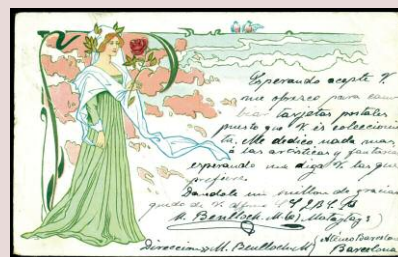 Esperando acepte V.
me ofrezco para cam
bear tarjetas postales
puesto que V. es coleccionis
ta. Me dedico nada mas
á las artísticas y fantasia
esperando me diga V. las que
prefiere.
Dandole un millon de gracias
quedo de V. afmo S. S. Q. B. S. M.
M. Benlloch M.
Direccion M. Benlloch M.
Ateneo Barcelones
Barcelona